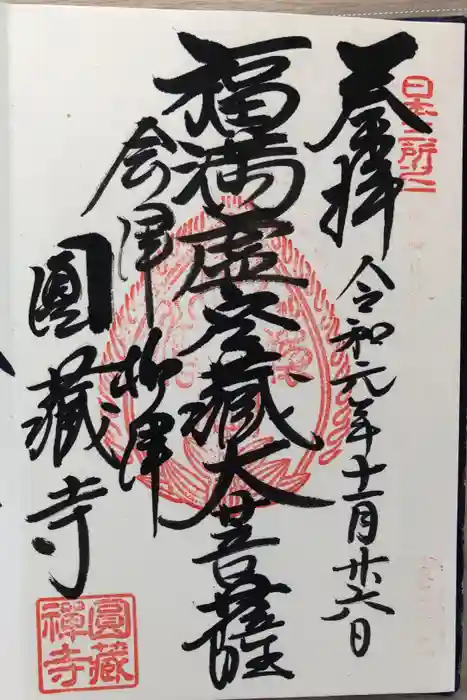 奉拝
日本三所之一
令和元年十一月廿六日
福満虚空藏大菩薩
会津柳津
圓藏寺
圓藏禪寺